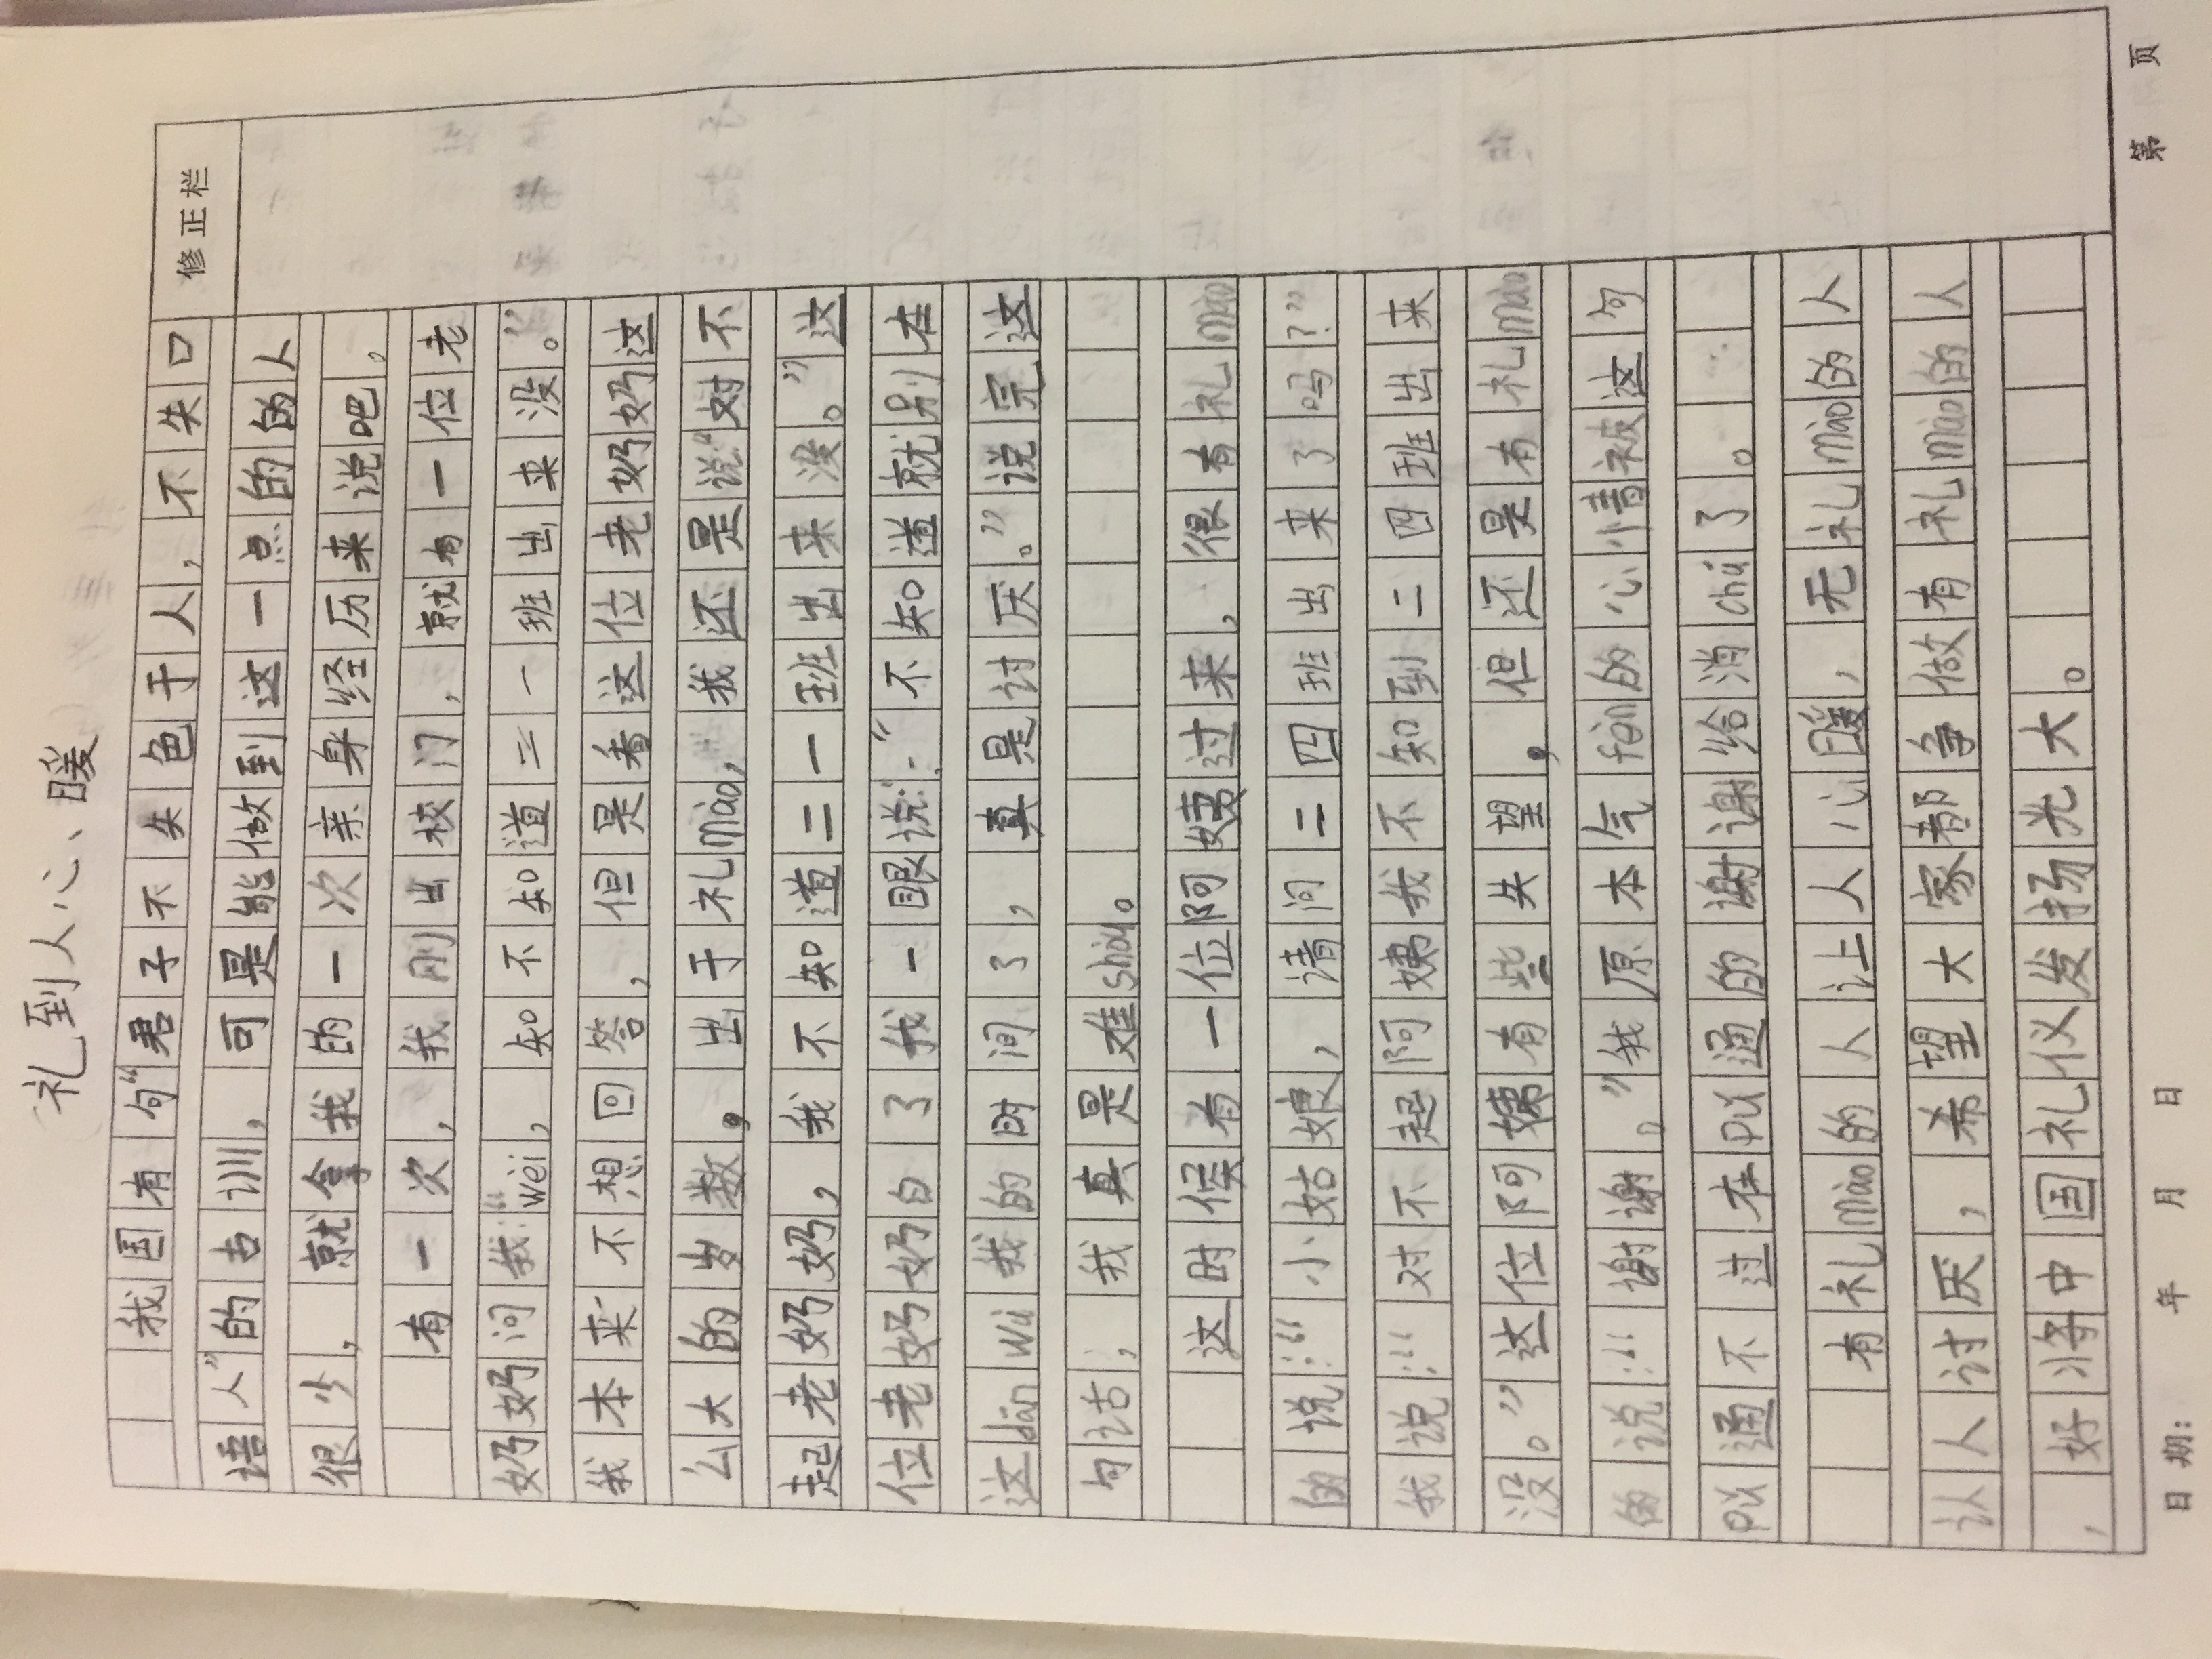 礼到人心、暖
修正栏
我国有句“君子不失色于人，不失口
语人”的古训，可是能做到这一点的的人
很少，就拿我的一次亲身经历来说吧。
有一次，我刚出校门，就有一位老
奶奶问我：“wèi，知不知道二一班出来没。”
我本来不想回答，但是看这位老奶奶这
么大的岁数。出于礼mào，我还是说：“对不
起老奶奶，我不知道二一班出来没。”这
位老奶奶白了我一眼说：“不知道就别在
这dān wù我的时间了，真是讨厌。”说完这
句话，我真是难shòu。
这时候有一位阿姨过来，很有礼mào
的说：“小姑娘，请问二四班出来了吗？”
我说：“对不起阿姨我不知到二四班出来
没。”这位阿姨有些失望，但还是有礼mào
的说：“谢谢。”我原本气fèn的心情被这句
pǔ通不过在pǔ通的谢谢给消chú了。
有礼mào的人让人心暖，无礼mào的人
认人讨厌，希望大家都争做有礼mào的人
，好将中国礼仪发扬光大。
日期： 年 月 日 第 页